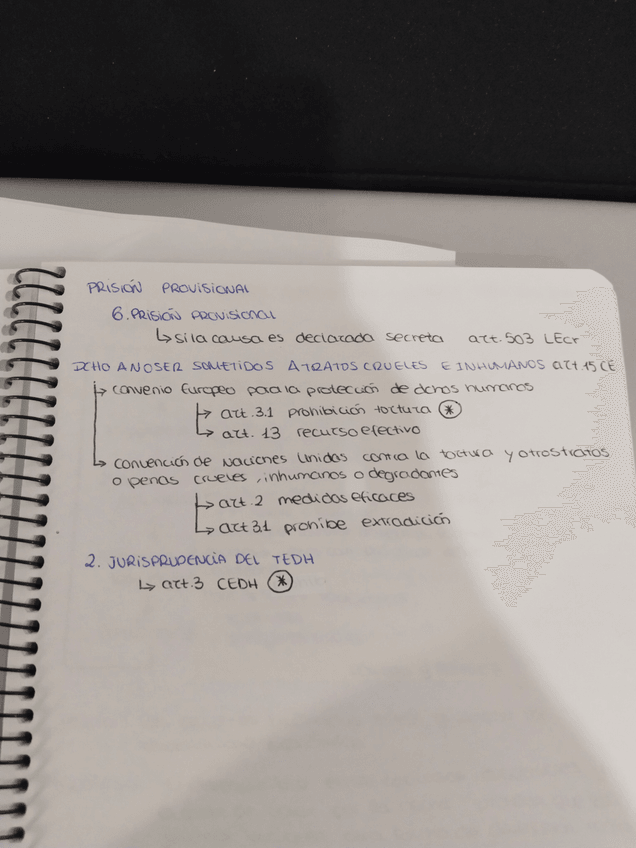 PRISIÓN PROVISIONAL
6. PRISIÓN PROVISIONAL
↳ si la causa es declarada secreta art. 503 LEcr
DCHO A NO SER SOMETIDOS A TRATOS CRUELES E INHUMANOS art 15 CE
→ convenio Europeo para la protección de dchos humanos
→ art. 3.1 prohibición tortura *
→ art. 13 recurso efectivo
→ convención de Naciones Unidas contra la tortura y otros tratos
o penas crueles, inhumanos o degradantes
→ art. 2 medidas eficaces
→ art 3.1 prohibe extradición
2. JURISPRUDENCIA DEL TEDH
↳ art. 3 CEDH *